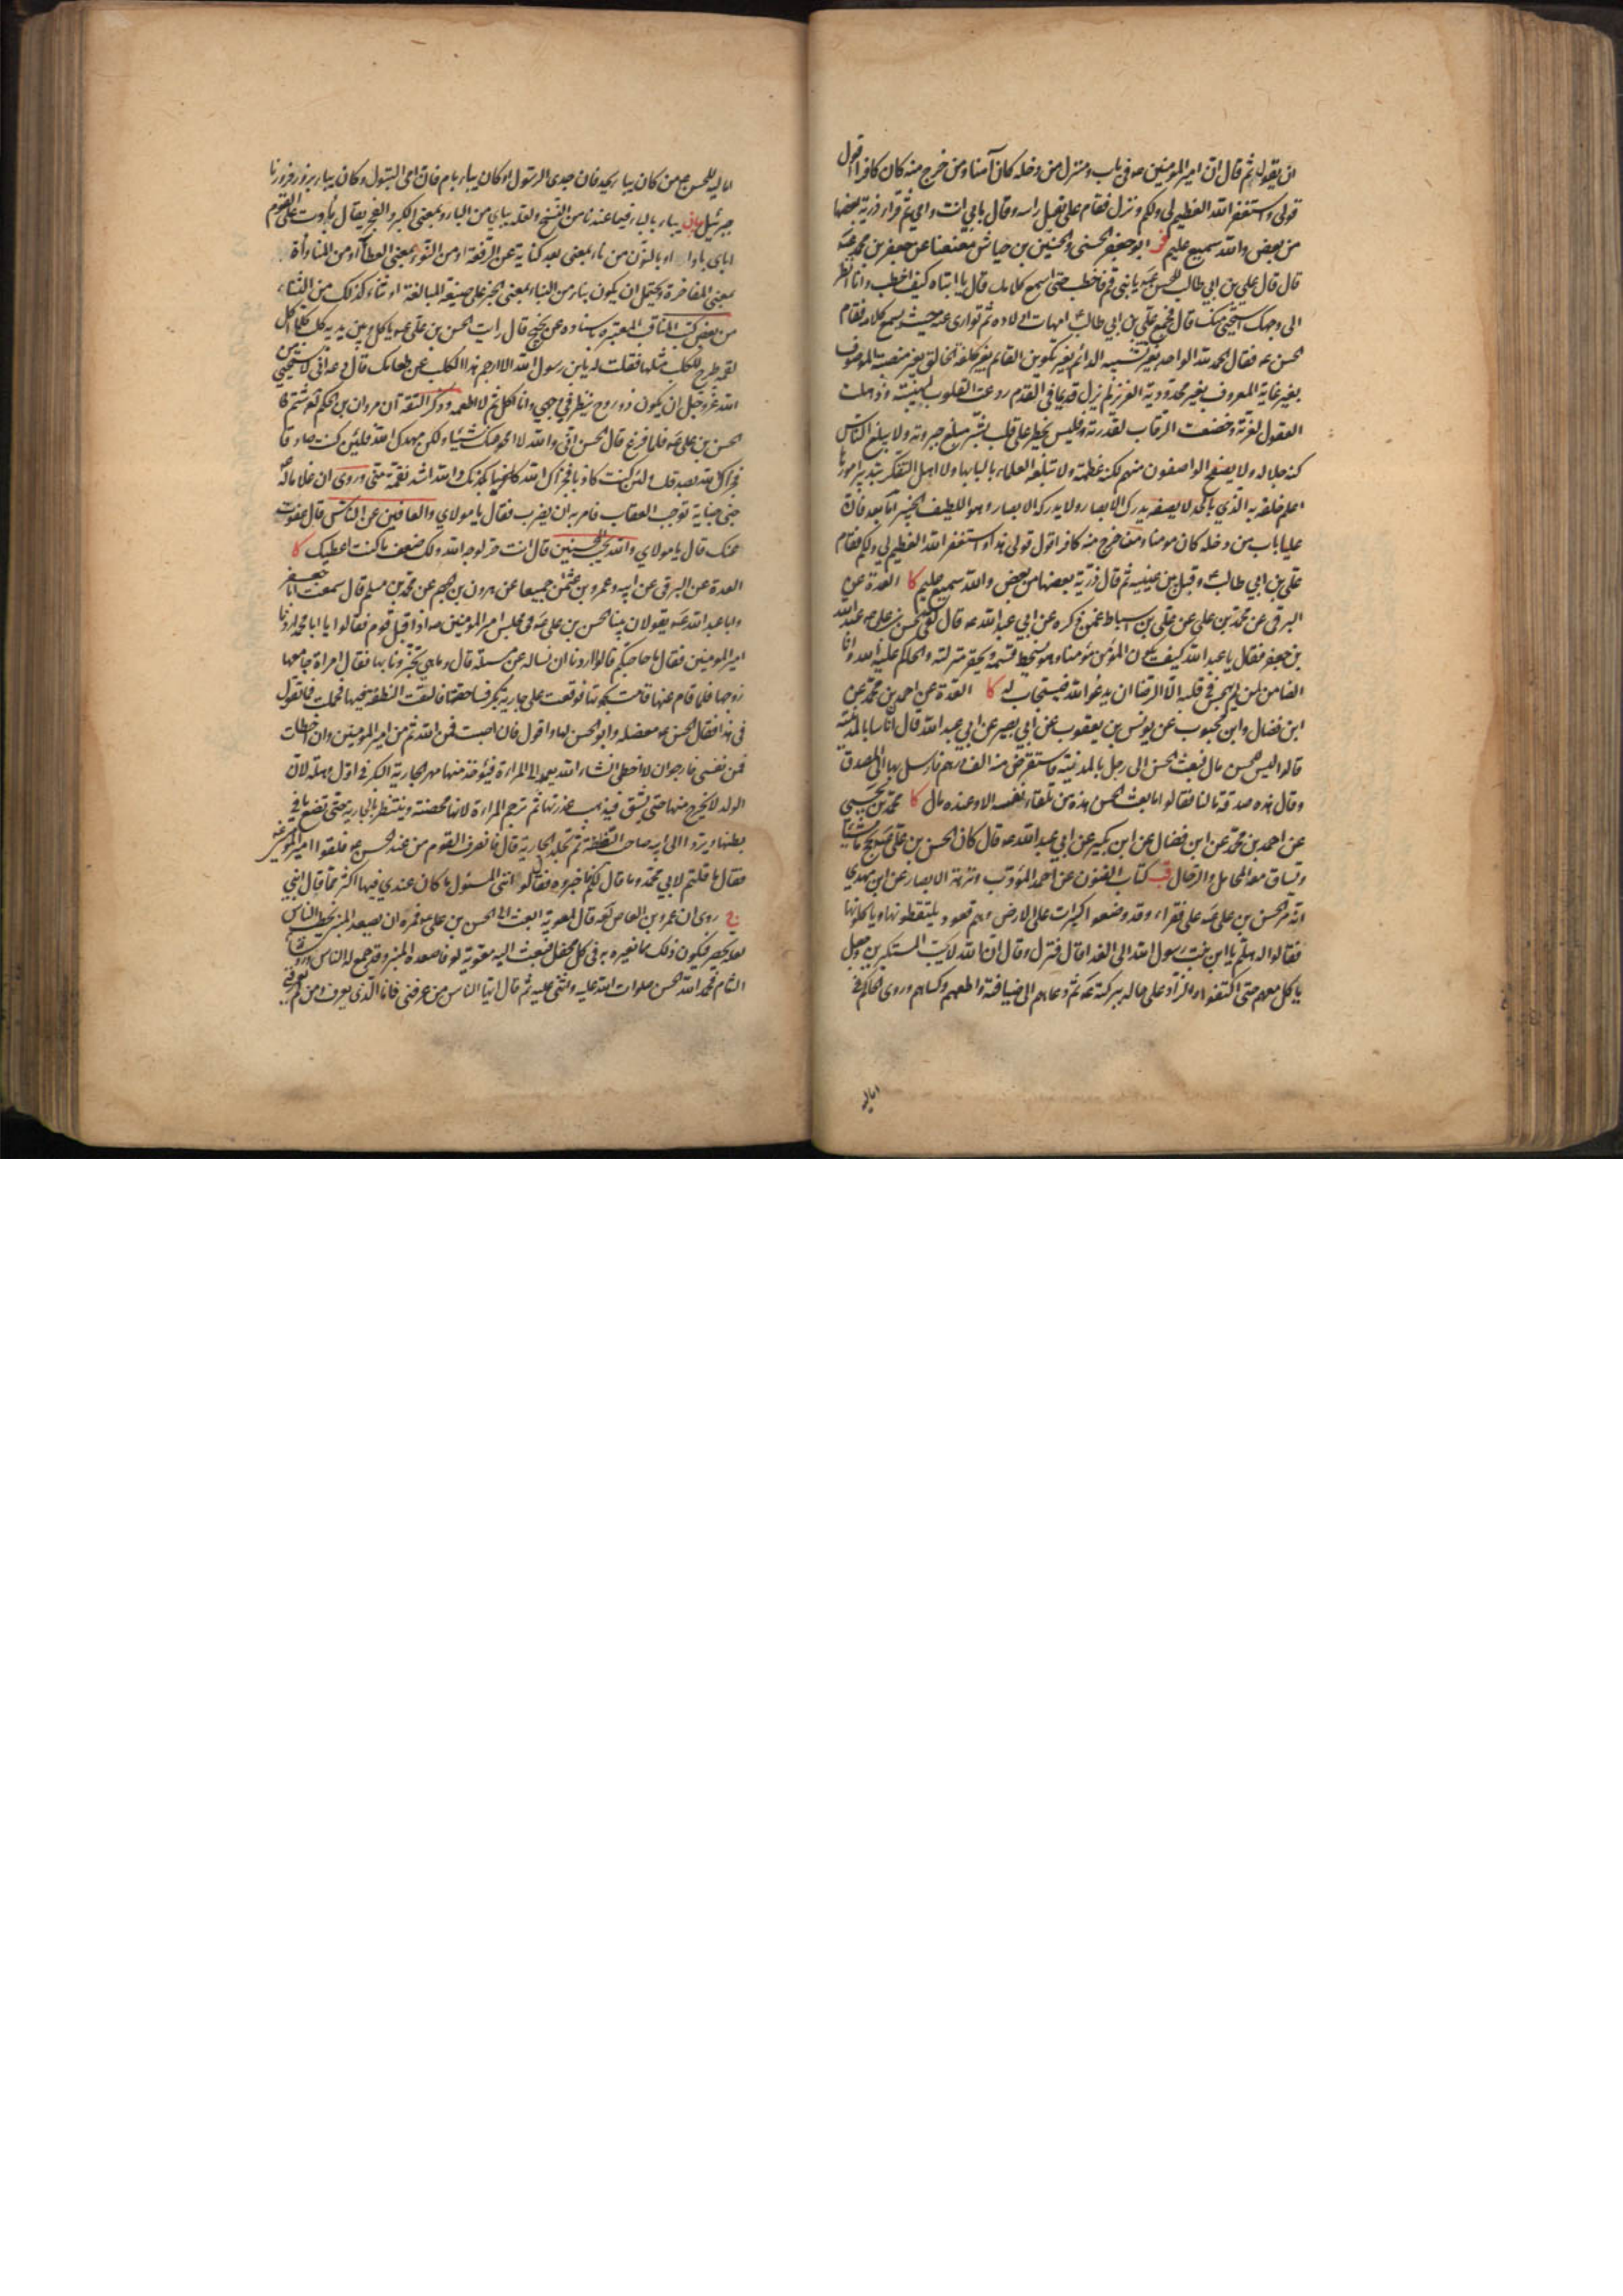 ان يقوله ثم قال ان امير المومنين ص في باب ومنزل من دخله كان آمنا ومن خرج منه كان كافرا اقول
قولي واستغفر الله العظيم لي ولكم ونزل فقام علي فقبل راسه وقال بابي انت وامي ثم قرا ذرية بعضها
من بعض والله سميع عليم فر ابو جعفر الحسني والحسين بن حياش معنعنا عن جعفر بن محمد ع
قال قال علي بن ابي طالب للحسن ع يا بني قم فاخطب حتى اسمع كلامك قال يا ابتاه كيف اخطب وانا انظر
الى وجهك استحيي منك قال فجمع علي بن ابي طالب امهات اولاده ثم توارى عنه حيث يسمع كلامه فقام
الحسن ع فقال الحمد لله الواحد بغير تشبيه الدائم بغير تكوين القائم بغير كلفة الخالق بغير منصبة الموصوف
بغير غاية المعروف بغير محدودية العزيز لم يزل قديما في القدم ردعت القلوب لهيبته وذهلت
العقول لعزته وخضعت الرقاب لقدرته فليس يخطر على قلب بشر مبلغ جبروته ولا يبلغ الناس
كنه جلاله ولا يفصح الواصفون منهم لكنه عظمته ولا تبلغه العلماء بالبابها ولا اهل التفكر بتدبير امورها
اعلم خلقه به الذي بالحد لا يصفه يدرك الابصار ولا يدركه الابصار وهو اللطيف الخبير اما بعد فان
عليا باب من دخله كان مومنا ومن خرج منه كافرا اقول قولي هذا واستغفر الله العظيم لي ولكم فقام
علي بن ابي طالب وقبل بين عينيه ثم قال ذرية بعضها من بعض والله سميع عليم كا العدة عن
البرقي عن محمد بن علي عن علي بن اسباط عمن ذكره عن ابي عبد الله ع قال لقي الحسن بن علي ع عبد الله
بن جعفر فقال يا عبد الله كيف يكون المؤمن مؤمنا وهو يسخط قسمه ويحقر منزلته والحاكم عليه الله وانا
الضامن لمن لم يهجس في قلبه الا الرضا ان يدعو الله فيستجاب له كا العدة عن احمد بن محمد عن
ابن فضال وابن محبوب عن يونس بن يعقوب عن ابي بصير عن ابي عبد الله قال ان اناسا بالمدينة
قالوا ليس للحسن مال فبعث الحسن الى رجل بالمدينة فاستقرض منه الف درهم فارسل بها الى المصدق
وقال هذه صدقة مالنا فقالوا ما بعث الحسن هذه من تلقاء نفسه الا وعنده مال كا محمد بن يحيى
عن احمد بن محمد عن ابن فضال عن ابن بكير عن ابي عبد الله ع قال كان الحسن بن علي ع يحج ماشيا
وتساق معه المحامل والرحال قب كتاب الفنون عن احمد المؤدب ونزهة الابصار عن ابن مهدي
انه مر الحسن بن علي ع على فقراء وقد وضعوا كسيرات على الارض وهم قعود يلتقطونها وياكلونها
فقالوا له هلم يا ابن بنت رسول الله الى الغداء قال فنزل وقال ان الله لا يحب المستكبرين وجعل
ياكل معهم حتى اكتفوا والزاد على حاله ببركته ع ثم دعاهم الى ضيافته واطعمهم وكساهم وروى الحاكم في
اماليه
اماليه للحسن ع من كان يباء بجد فان جدي الرسول او كان يباء بام فان امي البتول وكان يباء بزور فزورنا
جبرئيل بيان يباء بالباء فيما عندنا من النسخ ولعله بباي من الباو بمعنى الكبر والفخر يقال بأوت على القوم
اباي باوا او بالنون من ناء بمعنى بعد كناية عن الرفعة او من النوء بمعنى العطاء او من المناواة
بمعنى المفاخرة ويحتمل ان يكون بناء من النباء بمعنى الخبر على صيغة المبالغة او ثناء كذلك من الثناء
من بعض كتب المناقب المعتبرة باسناده عن نجيح قال رايت الحسن بن علي ع ياكل وبين يديه كلب كلما اكل
لقمة طرح للكلب مثلها فقلت له يابن رسول الله الا ارجم هذا الكلب عن طعامك قال دعه اني لاستحيي من
الله عز وجل ان يكون ذو روح ينظر في وجهي وانا آكل ثم لا اطعمه وذكر الثقة ان مروان بن الحكم لع شتم
الحسن بن علي ع فلما فرغ قال الحسن اني والله لا امحو عنك شيئا ولكن مهدك الله فلئن كنت صادقا
فجزاك الله بصدقك ولئن كنت كاذبا فجزاك الله بكذبك والله اشد نقمة مني وروي ان غلاما له
جنى جناية توجب العقاب فامر به ان يضرب فقال يا مولاي والعافين عن الناس قال عفوت
عنك قال يا مولاي والله يحب المحسنين قال انت حر لوجه الله ولك ضعف ما كنت اعطيك كا
العدة عن البرقي عن ابيه وعمرو بن عثمن جميعا عن هرون بن الجهم عن محمد بن مسلم قال سمعت ابا جعفر
وابا عبد الله ع يقولان بينا الحسن بن علي ع في مجلس امير المومنين ص اذ اقبل قوم فقالوا يا ابا محمد اردنا
امير المومنين فقال ما حاجتكم قالوا اردنا ان نساله عن مسئلة قال وما هي تخبرونا بها فقال امراة جامعها
زوجها فلما قام عنها قامت بحموتها فوقعت على جارية بكر فساحقتها فالقت النطفة فيها فحملت فما تقول
في هذا فقال الحسن ع معضلة وابو الحسن لها واقول فان اصبت فمن الله ثم من امير المومنين وان اخطات
فمن نفسي فارجو ان لا اخطي انشاء الله يعمد الى المراءة فيؤخذ منها مهر الجارية البكر في اول وهلة لان
الولد لا يخرج منها حتى يشق فيذهب عذرتها ثم ترجم المراءة لانها محصنة وينتظر بالجارية حتى تضع ما في
بطنها ويرد الى ابيه صاحب النطفة ثم تجلد الجارية قال فانصرف القوم من عند الحسن ع فلقوا امير المومنين
فقال ما قلتم لابي محمد وما قال لكم فاخبروه فقال لو انني المسئول ما كان عندي فيها اكثر مما قال ابني
يج روى ان عمرو بن العاص لع قال لمعوية ابعث الى الحسن بن علي ع فمره ان يصعد المنبر يخطب الناس
لعله يحصر فيكون ذلك مما نعيره به في كل محفل فبعث اليه معوية فاصعده المنبر وقد جمع له الناس ورؤساء
الشام فحمد الله الحسن صلوات الله عليه واثنى عليه ثم قال ايها الناس من عرفني فانا الذي يعرف ومن لم يعرفني